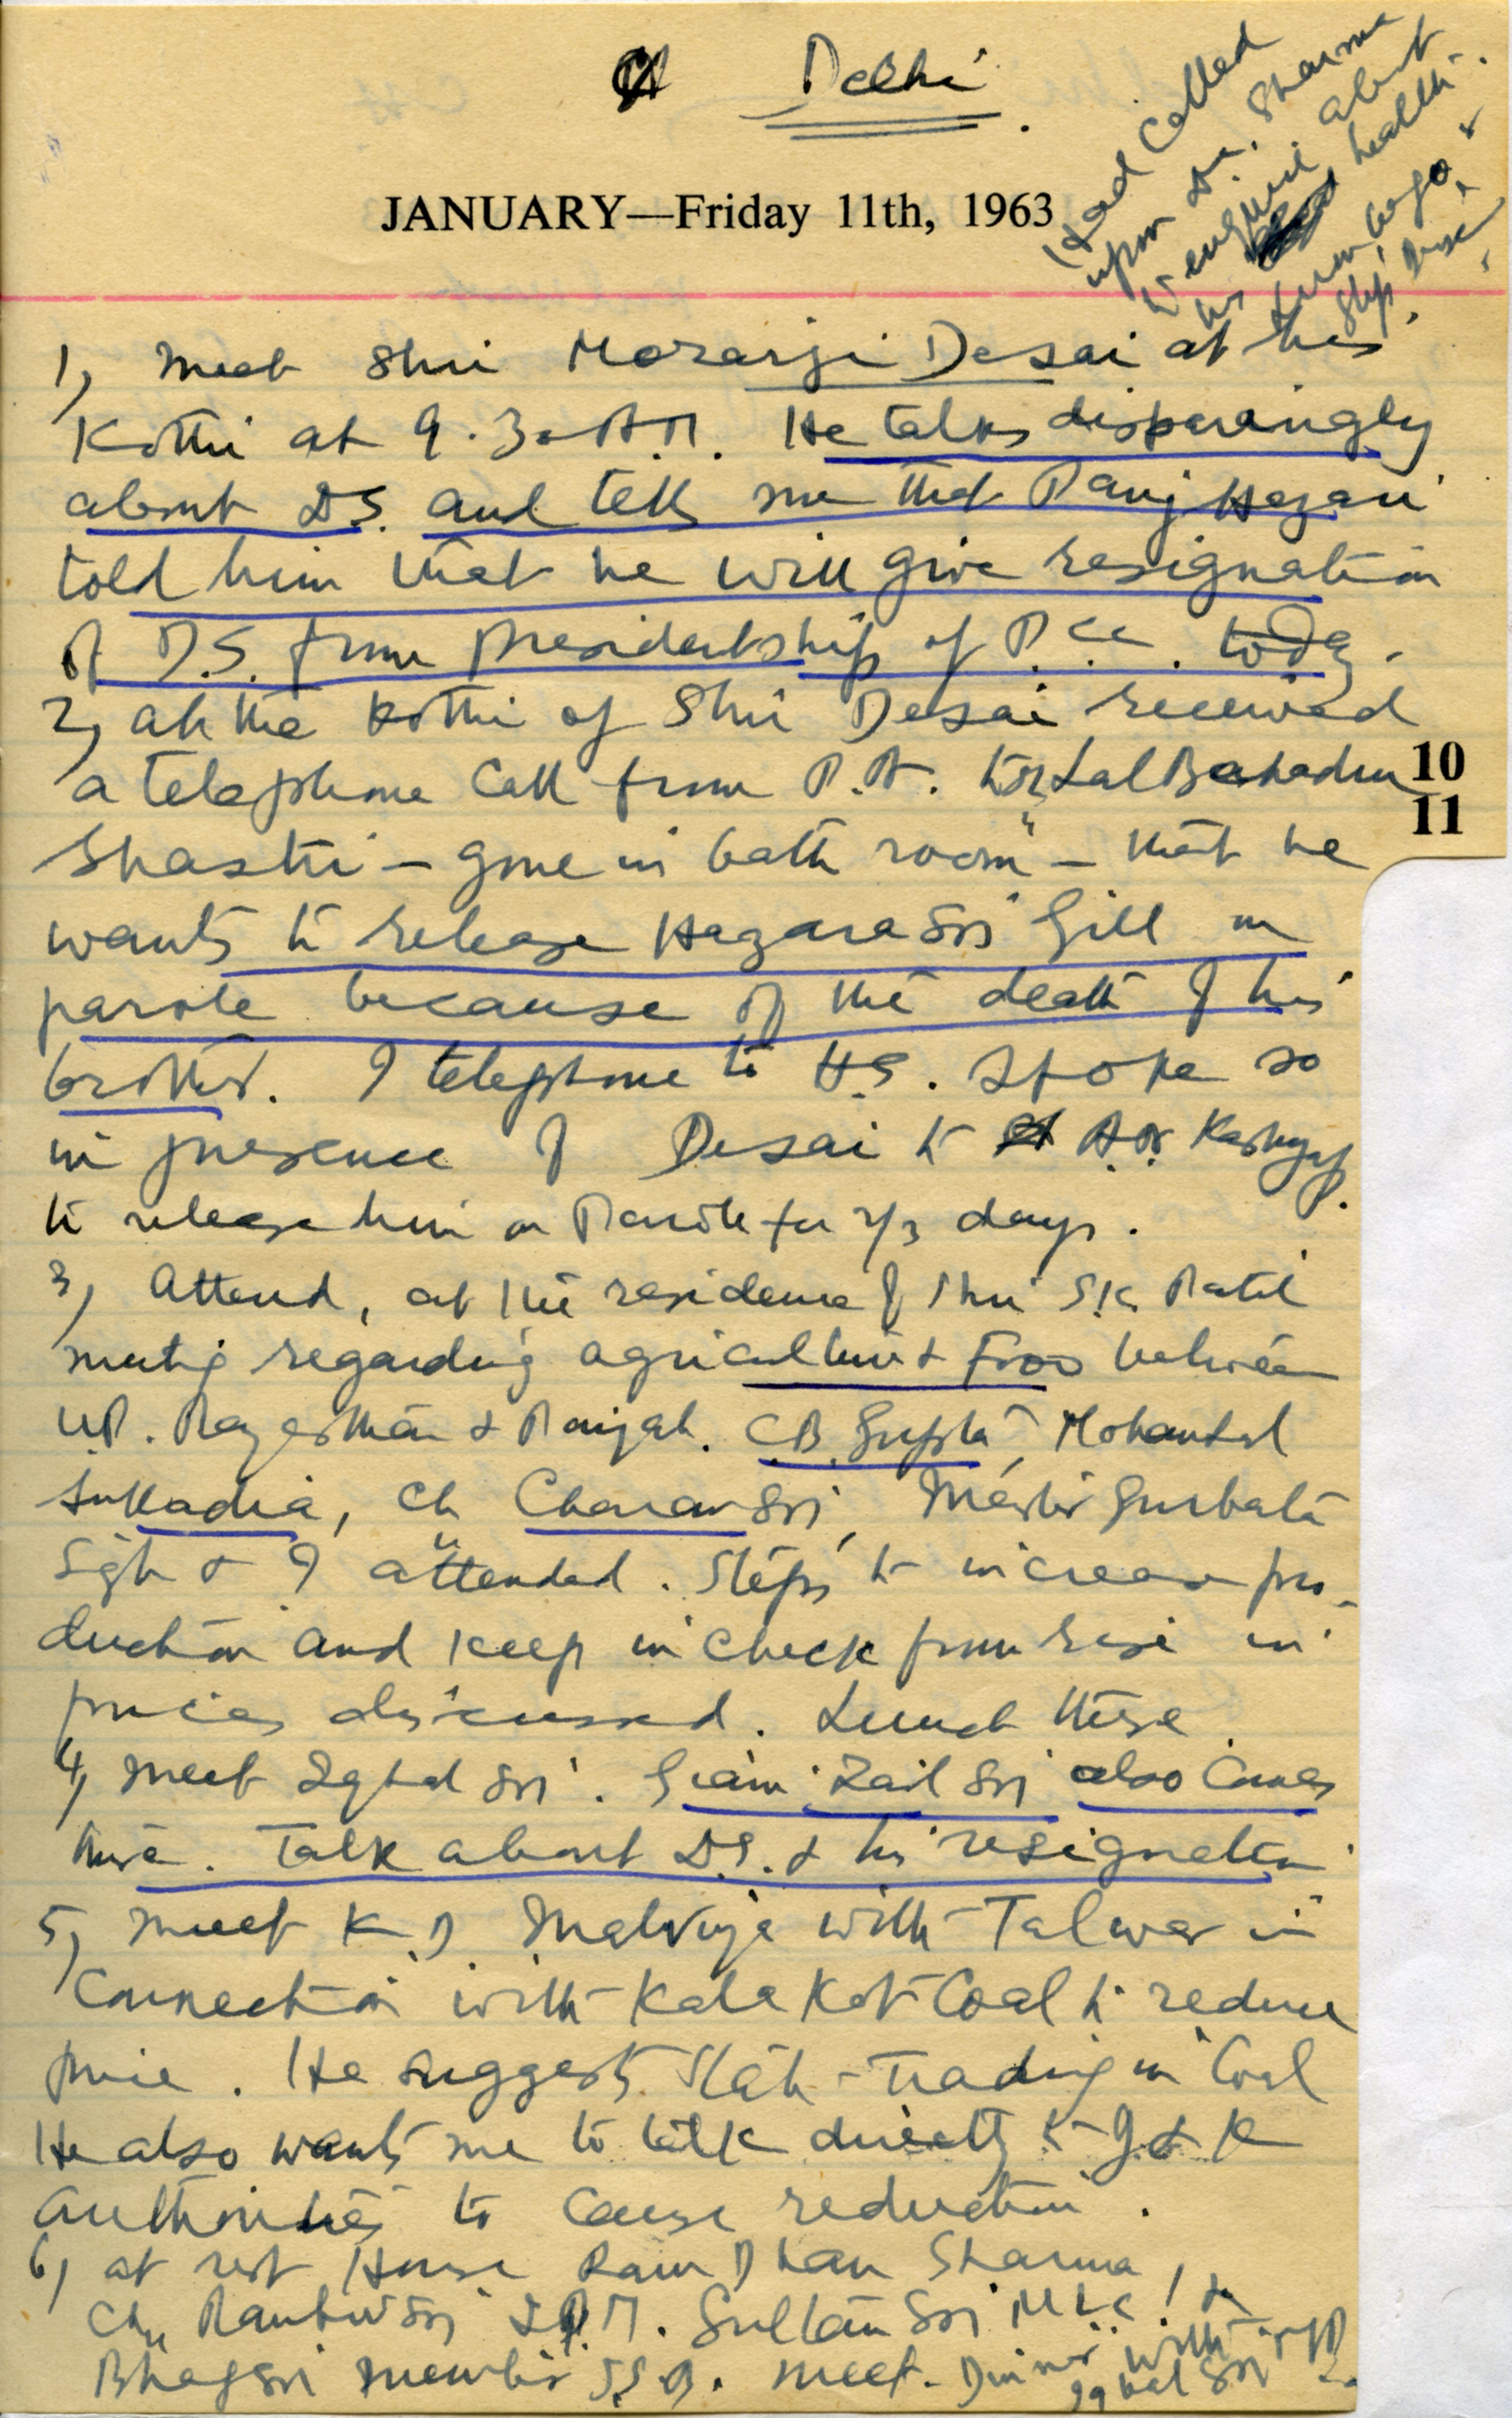 Delhi.
Had Called
upon Dr. Sharma
to enquire about
his health.
Lumbago &
Slip Disc.
JANUARY—Friday 11th, 1963
1, meet Shri Morarji Desai at his
Kothi at 9.30 A.M. He talks disparingly
about D.S. and tells me that Ranj Hazari
told him that he will give resignation
of D.S. from presidentship of P.C.C. today.
2, at the Kothi of Shri Desai received
a telephone Call from P.A. to Lal Bahadur
10
11
Shastri - "gone in bath room" - that he
wants to release Hazara Sri Gill on
parole because of the death of his
brother. I telephone to H.S. Spoke so
in presence of Desai to Kashyap.
to release him on Parole for 2/3 days.
3, Attend, at the residence of Shri S.K. Patil
meeting regarding agriculture & Food between
U.P. Rajasthan & Punjab. C.B. Gupta, Mohanlal
Sukadia, Ch Charan Sri, Master Gurbanta
Sigh & I attended. Steps to increase pro-
duction and keep in check from rise in
prices discussed. Lunch there.
4, meet Iqbal Sri. Giani Zail Sri also Comes
there. Talk about D.S. & his resignation
5, meet K.D. Malviya with Talwar in
Connection with Kala Kot Coal to reduce
price. He suggests State-Trading in Coal
He also wants me to talk directly to J & K
Authorities to Cause reduction.
6, at rest House Ram Dhan Sharma,
Ch. Ranbir Sri Sultan Sri MLC,
Bhag Sri member S.S.B. meet. Dinner with
Iqbal Sri